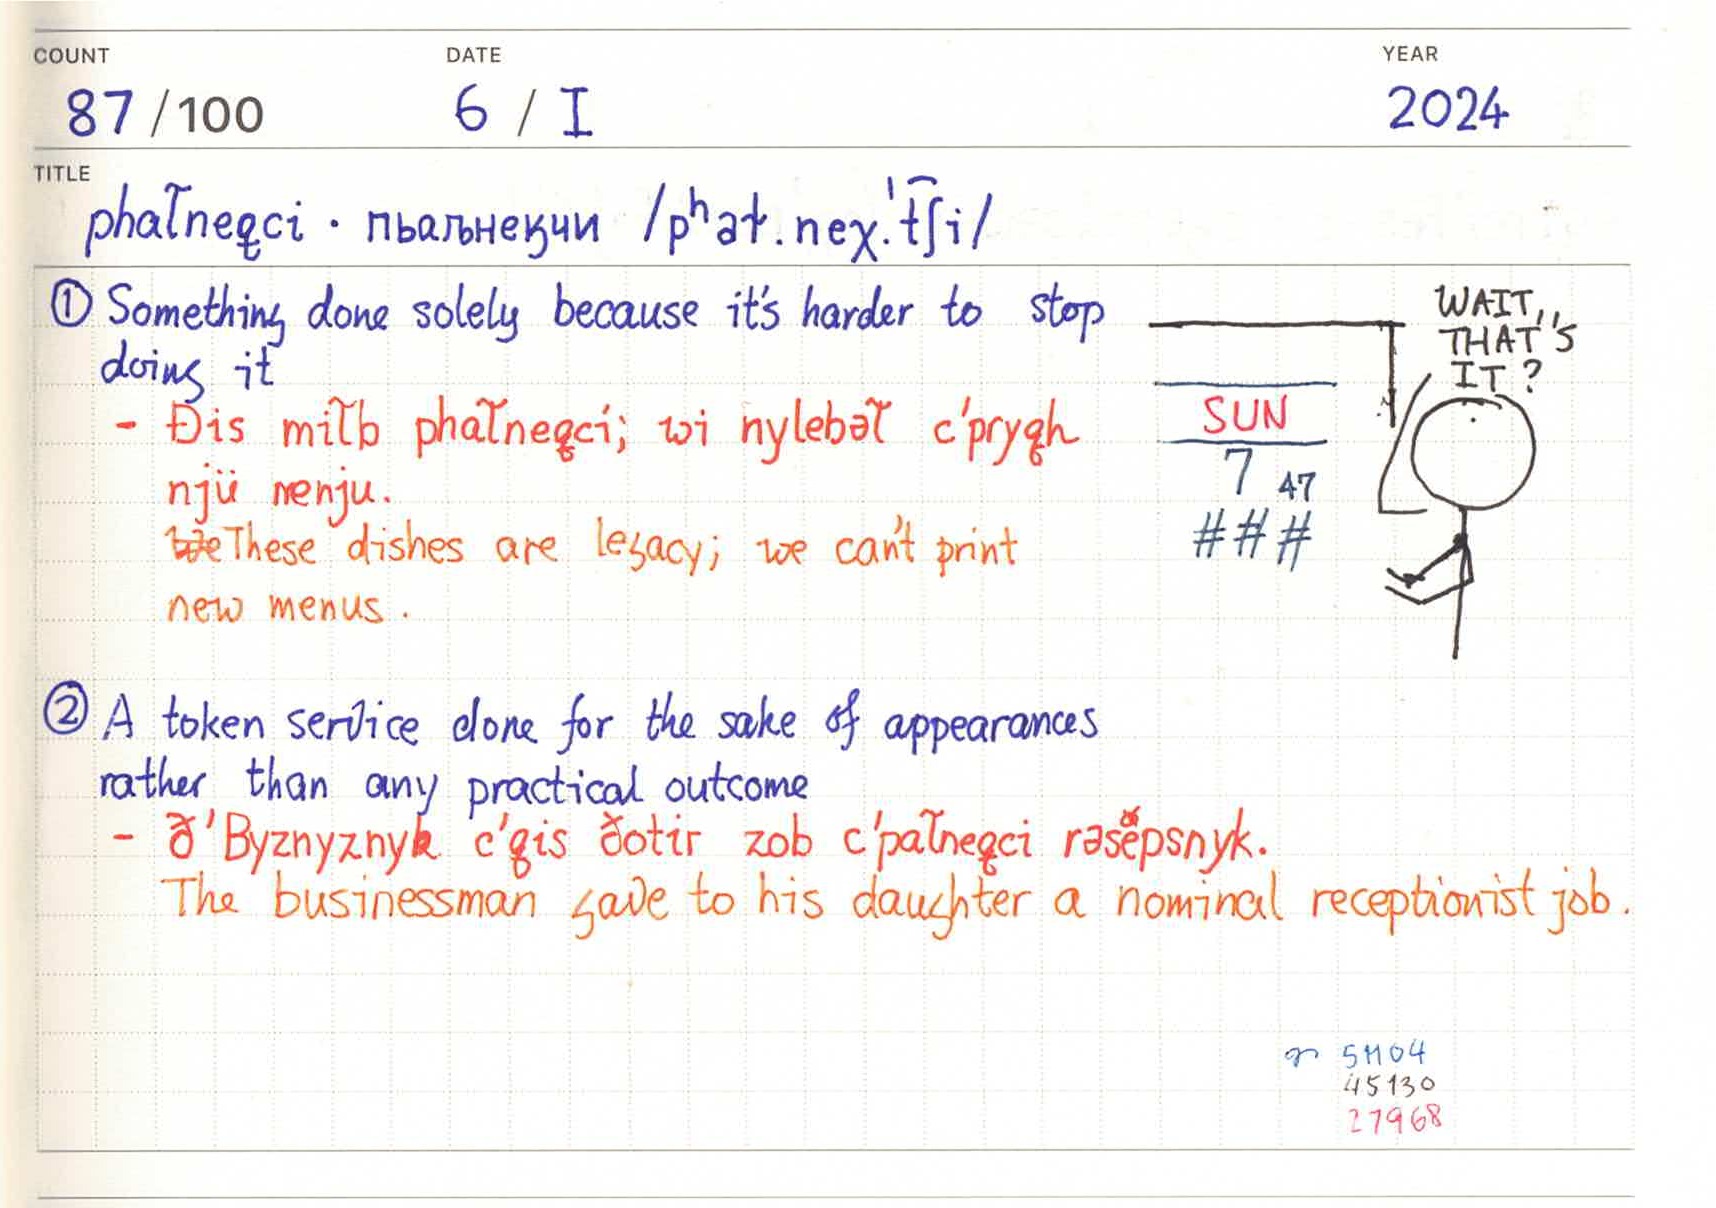 COUNT DATE YEAR
87 /100 6 / I 2024
TITLE
phal̃neq̨ci · пьаљнеӄчи /pʰəɫ.neχ.ˈt͡ʃi/
① Something done solely because it's harder to stop
doing it
- Ðis mil̃b phal̃neq̨ci; wi nylebəl̃ c'pryq̨h
njü menju.
These dishes are legacy; we can't print
new menus.
WAIT,,
THAT'S
IT?
SUN
7 47
###
② A token service done for the sake of appearances
rather than any practical outcome
- ð'Byznyznyk c'gis ðotir zob c'pal̃neq̨ci rəsepsnyk.
The businessman gave to his daughter a nominal receptionist job.
51104
45130
27968